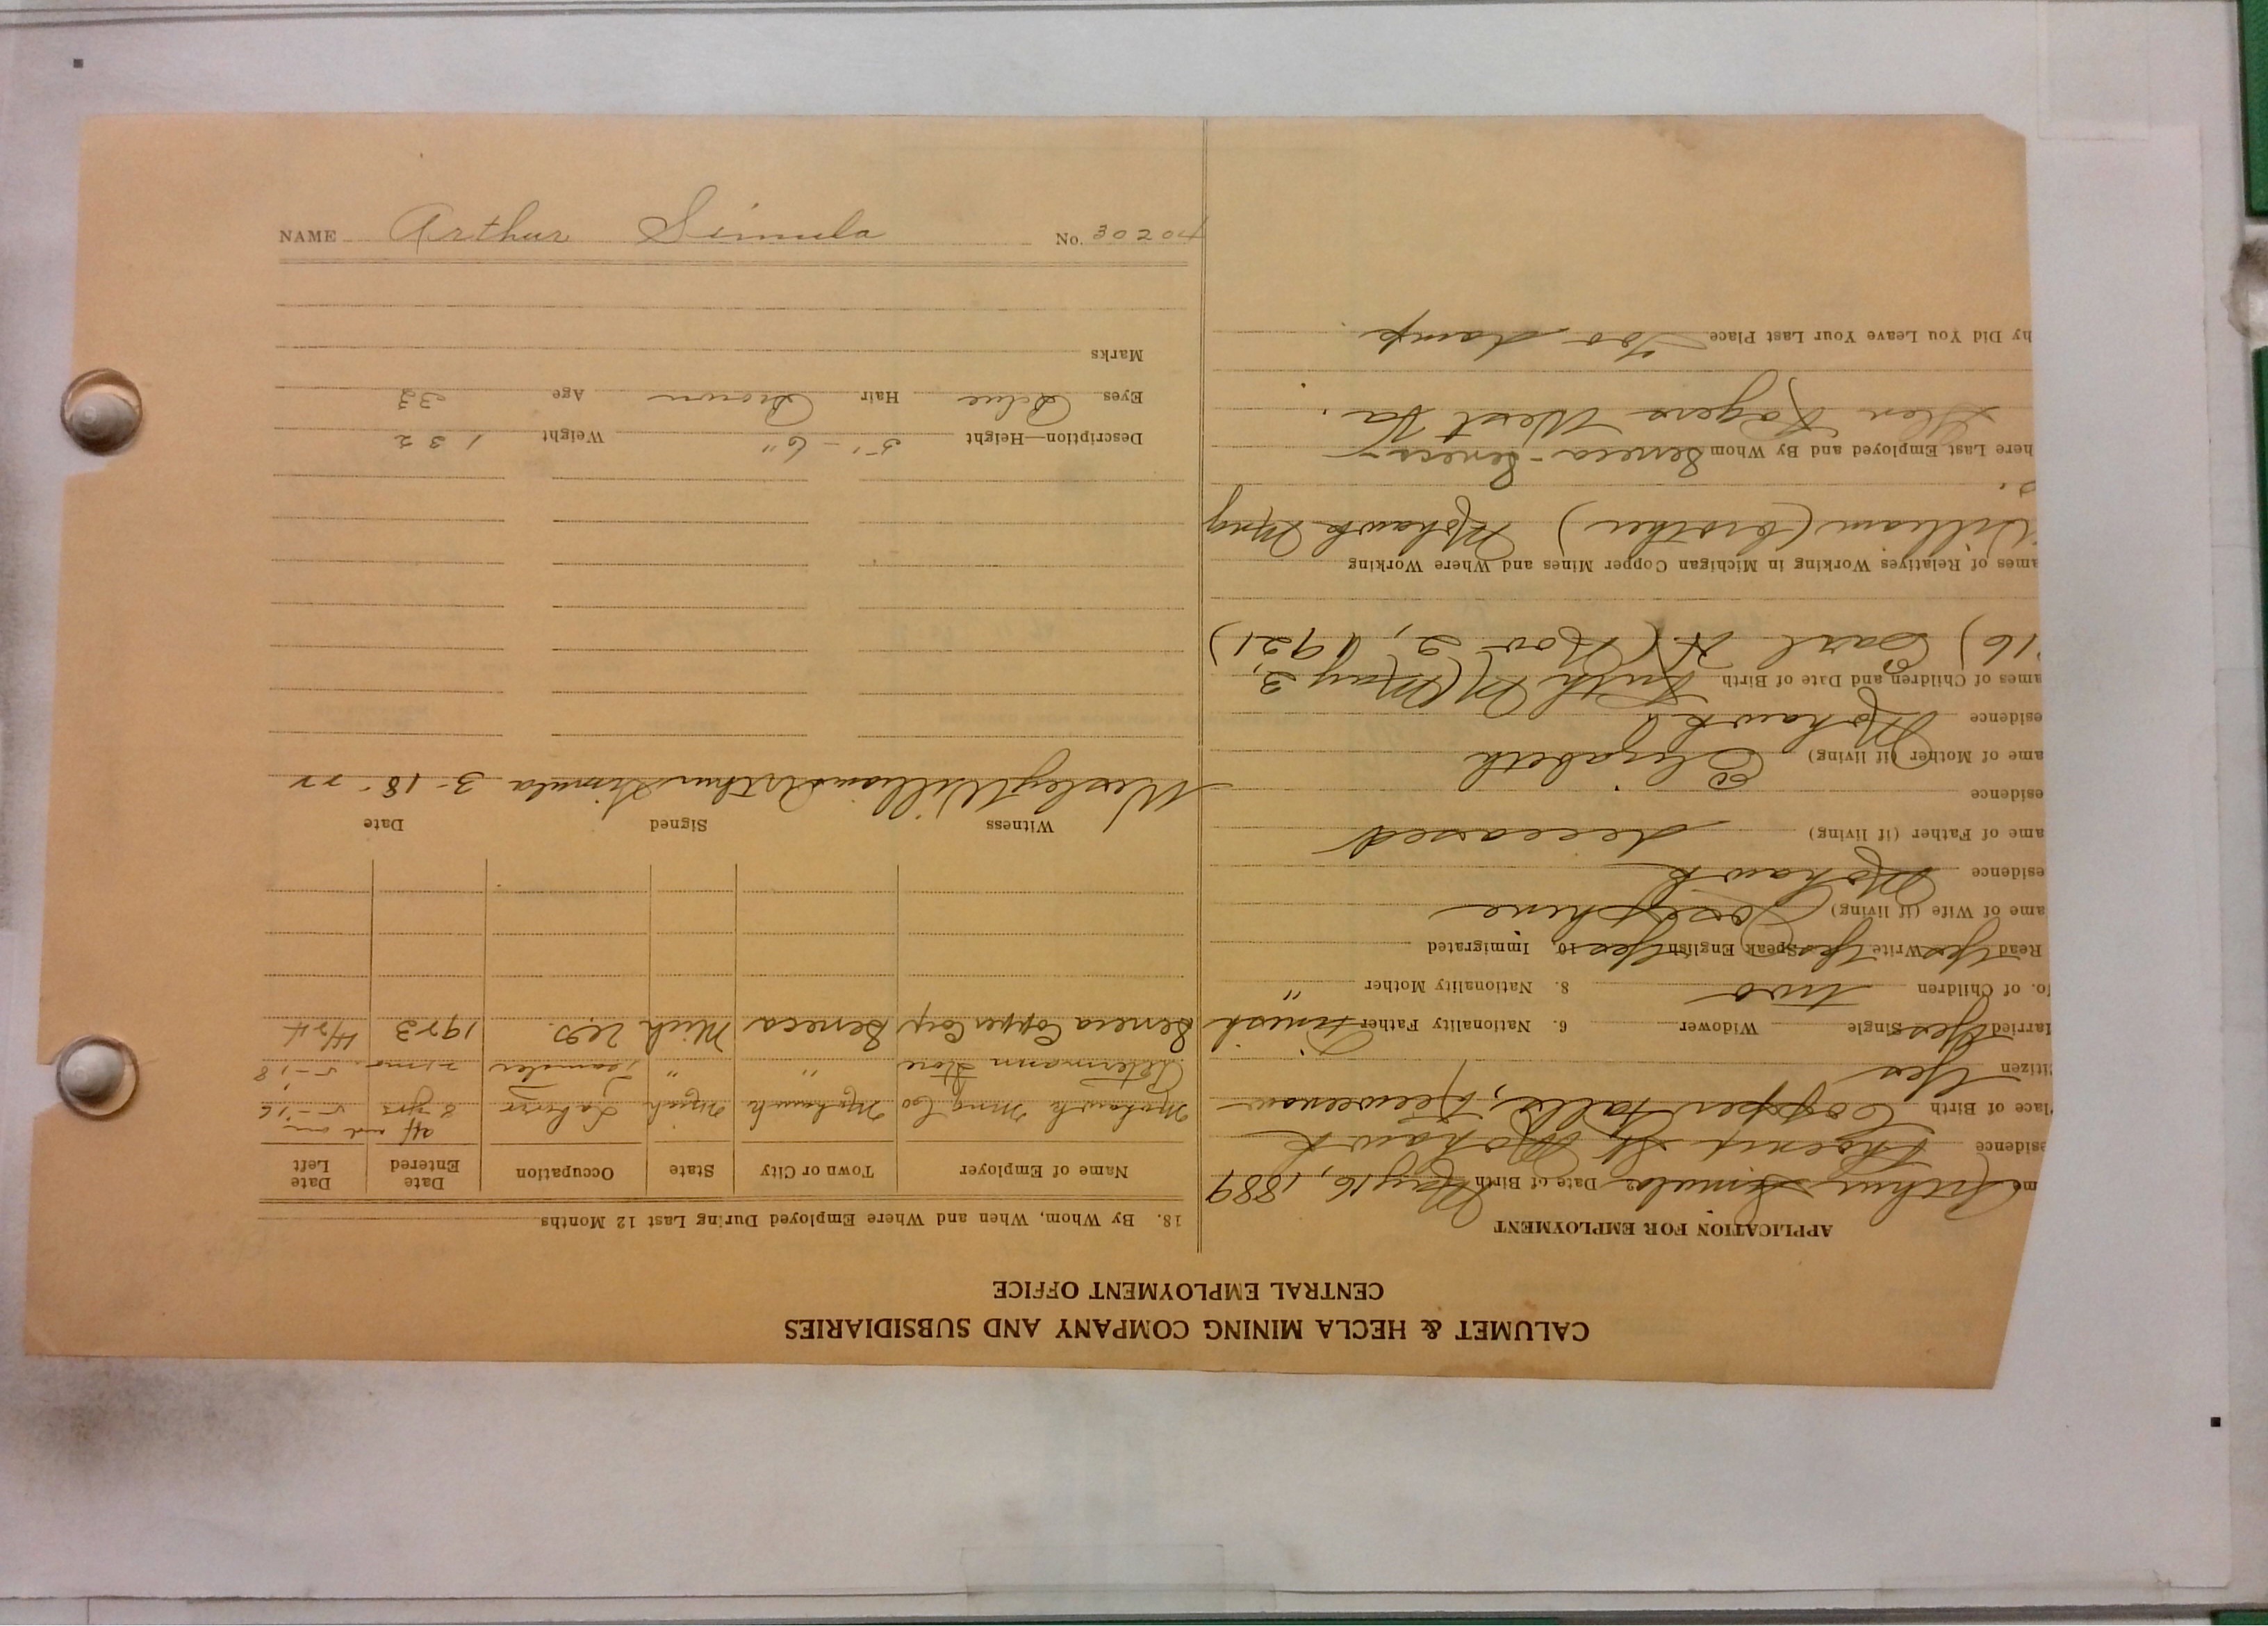 CALUMET & HECLA MINING COMPANY AND SUBSIDIARIES
CENTRAL EMPLOYMENT OFFICE
APPLICATION FOR EMPLOYMENT
me Arthur Simula 2 Date of Birth May 16, 1889
esidence Phoenix St Mohawk
lace of Birth Copper Falls, Keweenaw
itizen Yes
Married Yes Single Widower 6. Nationality Father Finnish
No. of Children two 8. Nationality Mother "
Read Yes Write Yes Speak English Yes 10. Immigrated
ame of Wife (if living) Josephine
esidence Mohawk
ame of Father (if living) deceased
esidence
ame of Mother (if living) Elizabeth
esidence Mohawk
ames of Children and Date of Birth Ruth M (May 3,
'16) Carl H (Nov 2, 1921)
ames of Relatives Working in Michigan Copper Mines and Where Working
William (brother) Mohawk Mng
o.
here Last Employed and By Whom Seneca - Seneca -
Glen Rogers West Va.
hy Did You Leave Your Last Place Too damp.
18. By Whom, When and Where Employed During Last 12 Months
Name of Employer Town or City State Occupation Date Entered Date Left
off and on
Mohawk Mng Co Mohawk Mich Laborer 8 yrs 5-'16
Petermann Store " " Teamster 5-'18
Seneca Copper Corp Seneca Mich 1923 4/24
Witness Signed Date
Wesley Williams Arthur Simula 3-18-22
Description—Height 5'-6" Weight 132
Eyes Blue Hair Brown Age 32
Marks
NAME Arthur Simula No. 30204